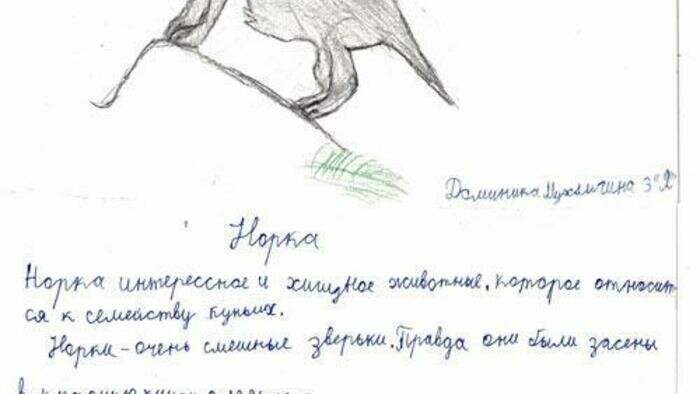 Доминика 3"Д"
Норка
Норка интерессное и хищное животные, которое относит
ся к семейству куньих.
Норки - очень смешные зверьки. Правда они были засены
в